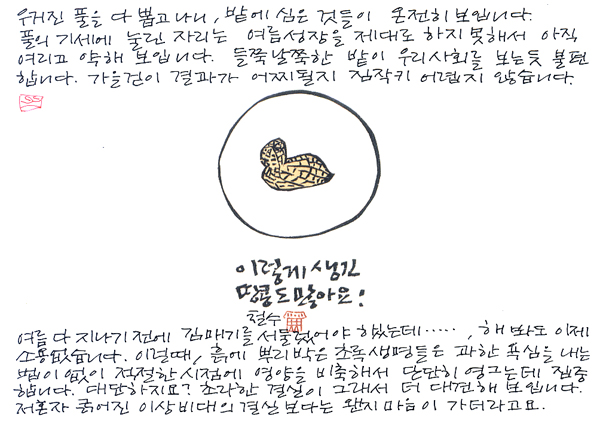 우거진 풀을 다 뽑고나니, 밭에 심은 것들이 온전히 보입니다.
풀의 기세에 눌린 자리는 여름성장을 제대로 하지 못해서 아직
여리고 약해 보입니다. 들쭉날쭉한 밭이 우리사회를 보는듯 불편
합니다. 가을걷이 결과가 어찌될지 짐작키 어렵지 않습니다.
이렇게 생긴
땅콩도 많아요!
철수
여름 다 지나기 전에 김매기를 서둘렀어야 했는데‥‥‥, 해 봐도 이제
소용없습니다. 이럴때, 흙에 뿌리 박은 초록생명들은 과한 욕심을 내는
법이 없이 적절한 시점에 영양을 비축해서 단단히 영그는데 집중
합니다. 대단하지요? 초라한 결실이 그래서 더 대견해 보입니다.
저혼자 굵어진 이상비대의 결실 보다는 왠지 마음이 가더라고요.